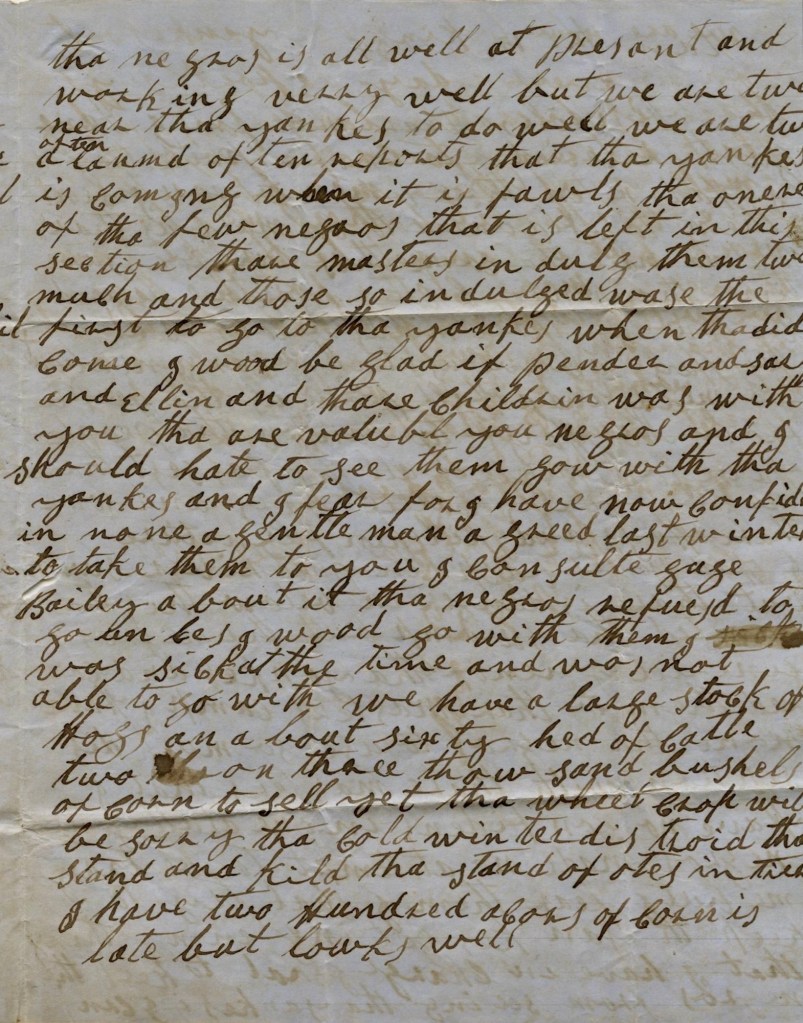 tha negros is all well at presant and
working verry well but we are two
near tha yankes to do well we are two
often
alarmd of ten reports that tha yankes
is Comgng when it is fawls tha oners
of tha few negros that is left in this
section thare masters in dulg them two
much and those so indulged ware the
first to go to tha yankes when tha did
Come g wood be glad if Pender and
and Ellin and thare Childrin was with
you tha are valubl you negros and g
should hate to see them gow with tha
yankes and g fear for g have now Confid
in none a gentle man a greed last winter
to take them to you g Consulte gage
Bailey a bout it tha negros refuesd to
go un les g wood go with them g
was sick at the time and was not
able to go with we have a large stock of
Hogs an a bout sixty hed of Catle
two or three thow sand bushels
of Corn to sell yet tha wheet Crop wil
be sorry tha Cold winter dis troid tha
stand and kild tha stand of otes in
g have two Hundred acors of Corn is
late but lowks well